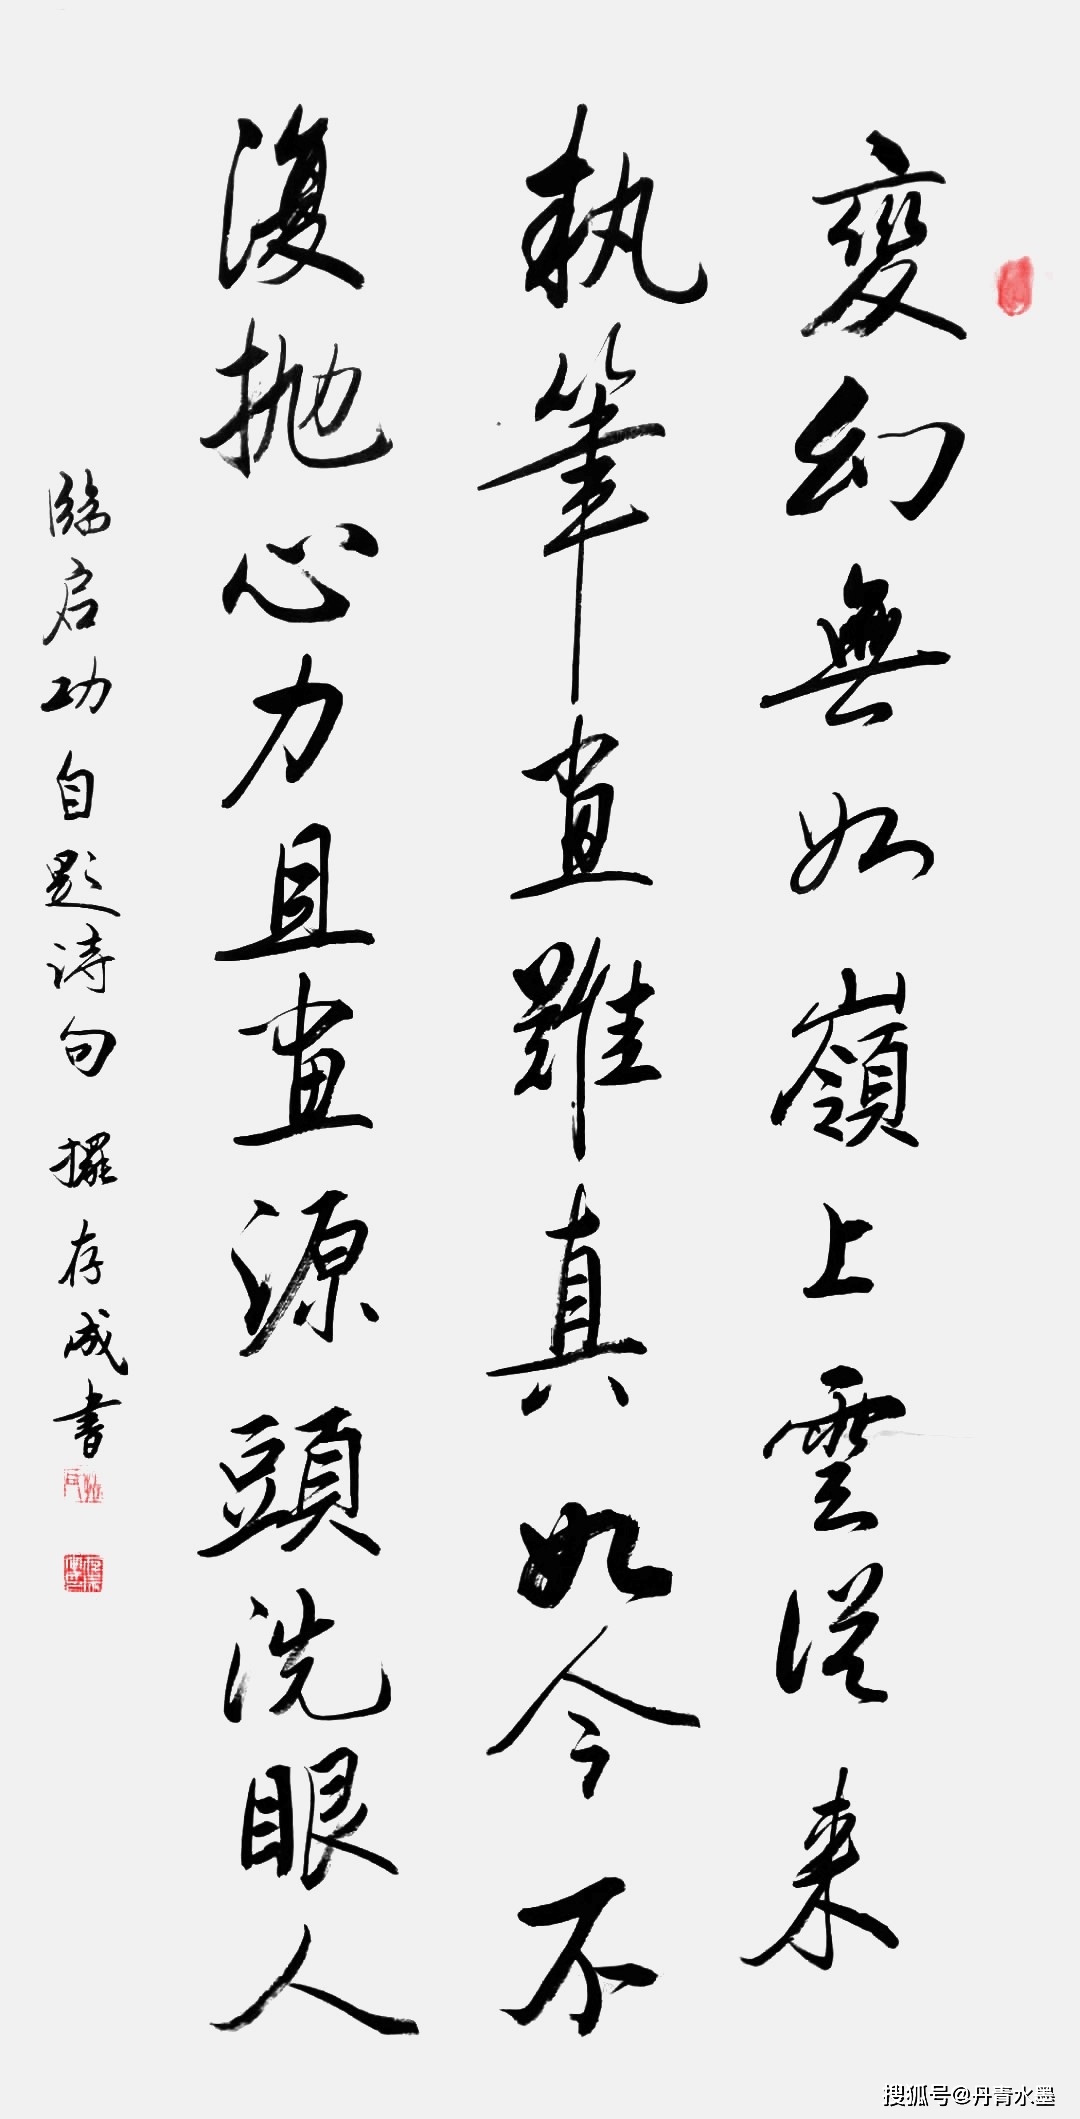 變幻無如嶺上雲從来
執筆畫難真如今不
復抛心力且畫源頭洗眼人
临启功自题诗句 存成書
搜狐号@丹青水墨